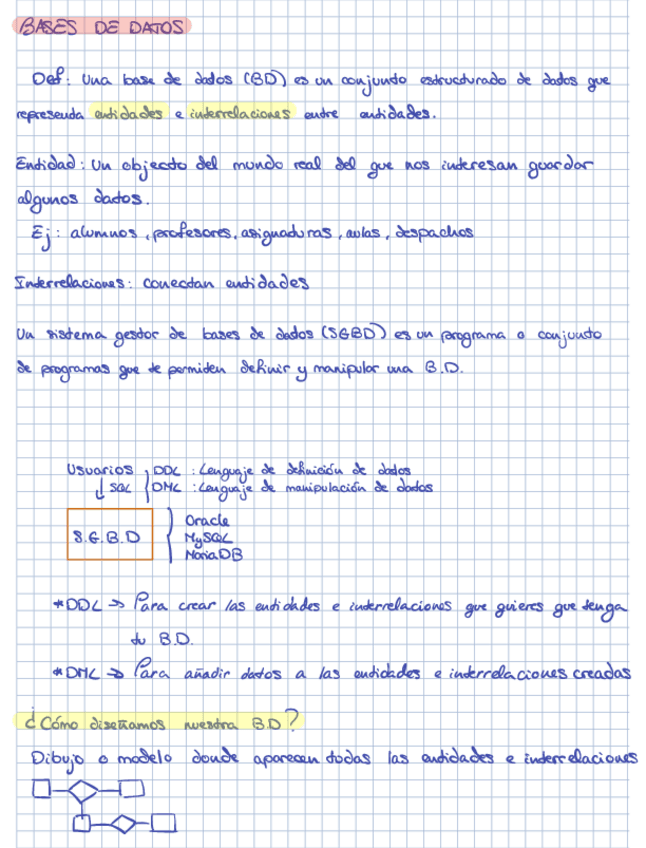 BASES DE DATOS
Def: Una base de datos (BD) es un conjunto estructurado de datos que
representa entidades e interrelaciones entre entidades.
Entidad: Un objecto del mundo real del que nos interesan guardar
algunos datos.
Ej: alumnos, profesores, asignaturas, aulas, despachos
Interrelaciones: conectan entidades
Un sistema gestor de bases de datos (SGBD) es un programa o conjunto
de programas que te permiten definir y manipular una B.D.
Usuarios DDL: Lenguaje de definición de datos
↓ SQL DML: Lenguaje de manipulación de datos
S.G.B.D
Oracle
MySQL
MariaDB
*DDL → Para crear las entidades e interrelaciones que quieres que tenga
tu B.D.
*DML → Para añadir datos a las entidades e interrelaciones creadas
¿Cómo diseñamos nuestra B.D?
Dibujo o modelo donde aparecen todas las entidades e interrelaciones